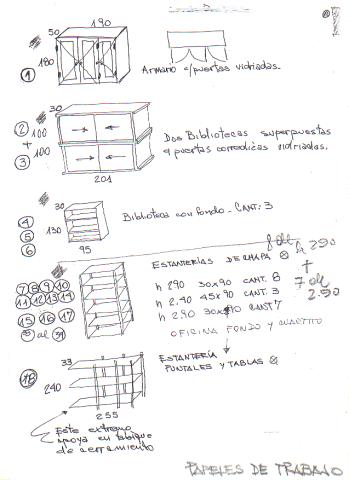 190
50
180
1
Armario c/puertas vidriadas.
30
2 100
+
3 100
Dos Bibliotecas superpuestas
c/puertas corredizas vidriadas.
201
30
4
5 130
6
95
Biblioteca con fondo - CANT: 3
ESTANTERÍAS DE CHAPA
7 8 9 10
11 12 13 14
15 16 17
al
h 290 30x90 CANT. 8
h 2.40 45x90 CANT. 3
h 290 30x90 CANT 7
h 290
+
7 de
2.90
OFICINA FONDO Y CUARTITO
18
33
240
255
ESTANTERÍA
PUNTALES Y TABLAS
Este extremo
apoya en tabique
de cerramiento
PAPELES DE TRABAJO